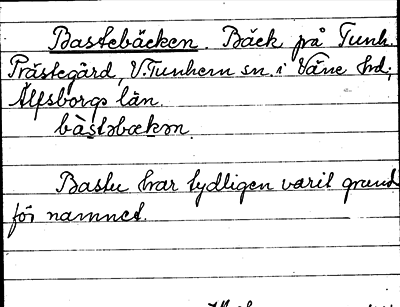 Bastebäcken. Bäck på Tunh.
Prästegård, V. Tunhem sn. i Väne hd,
Älfsborgs län.
bàstəbækən.
Bastu har tydligen varit grund
för namnet.